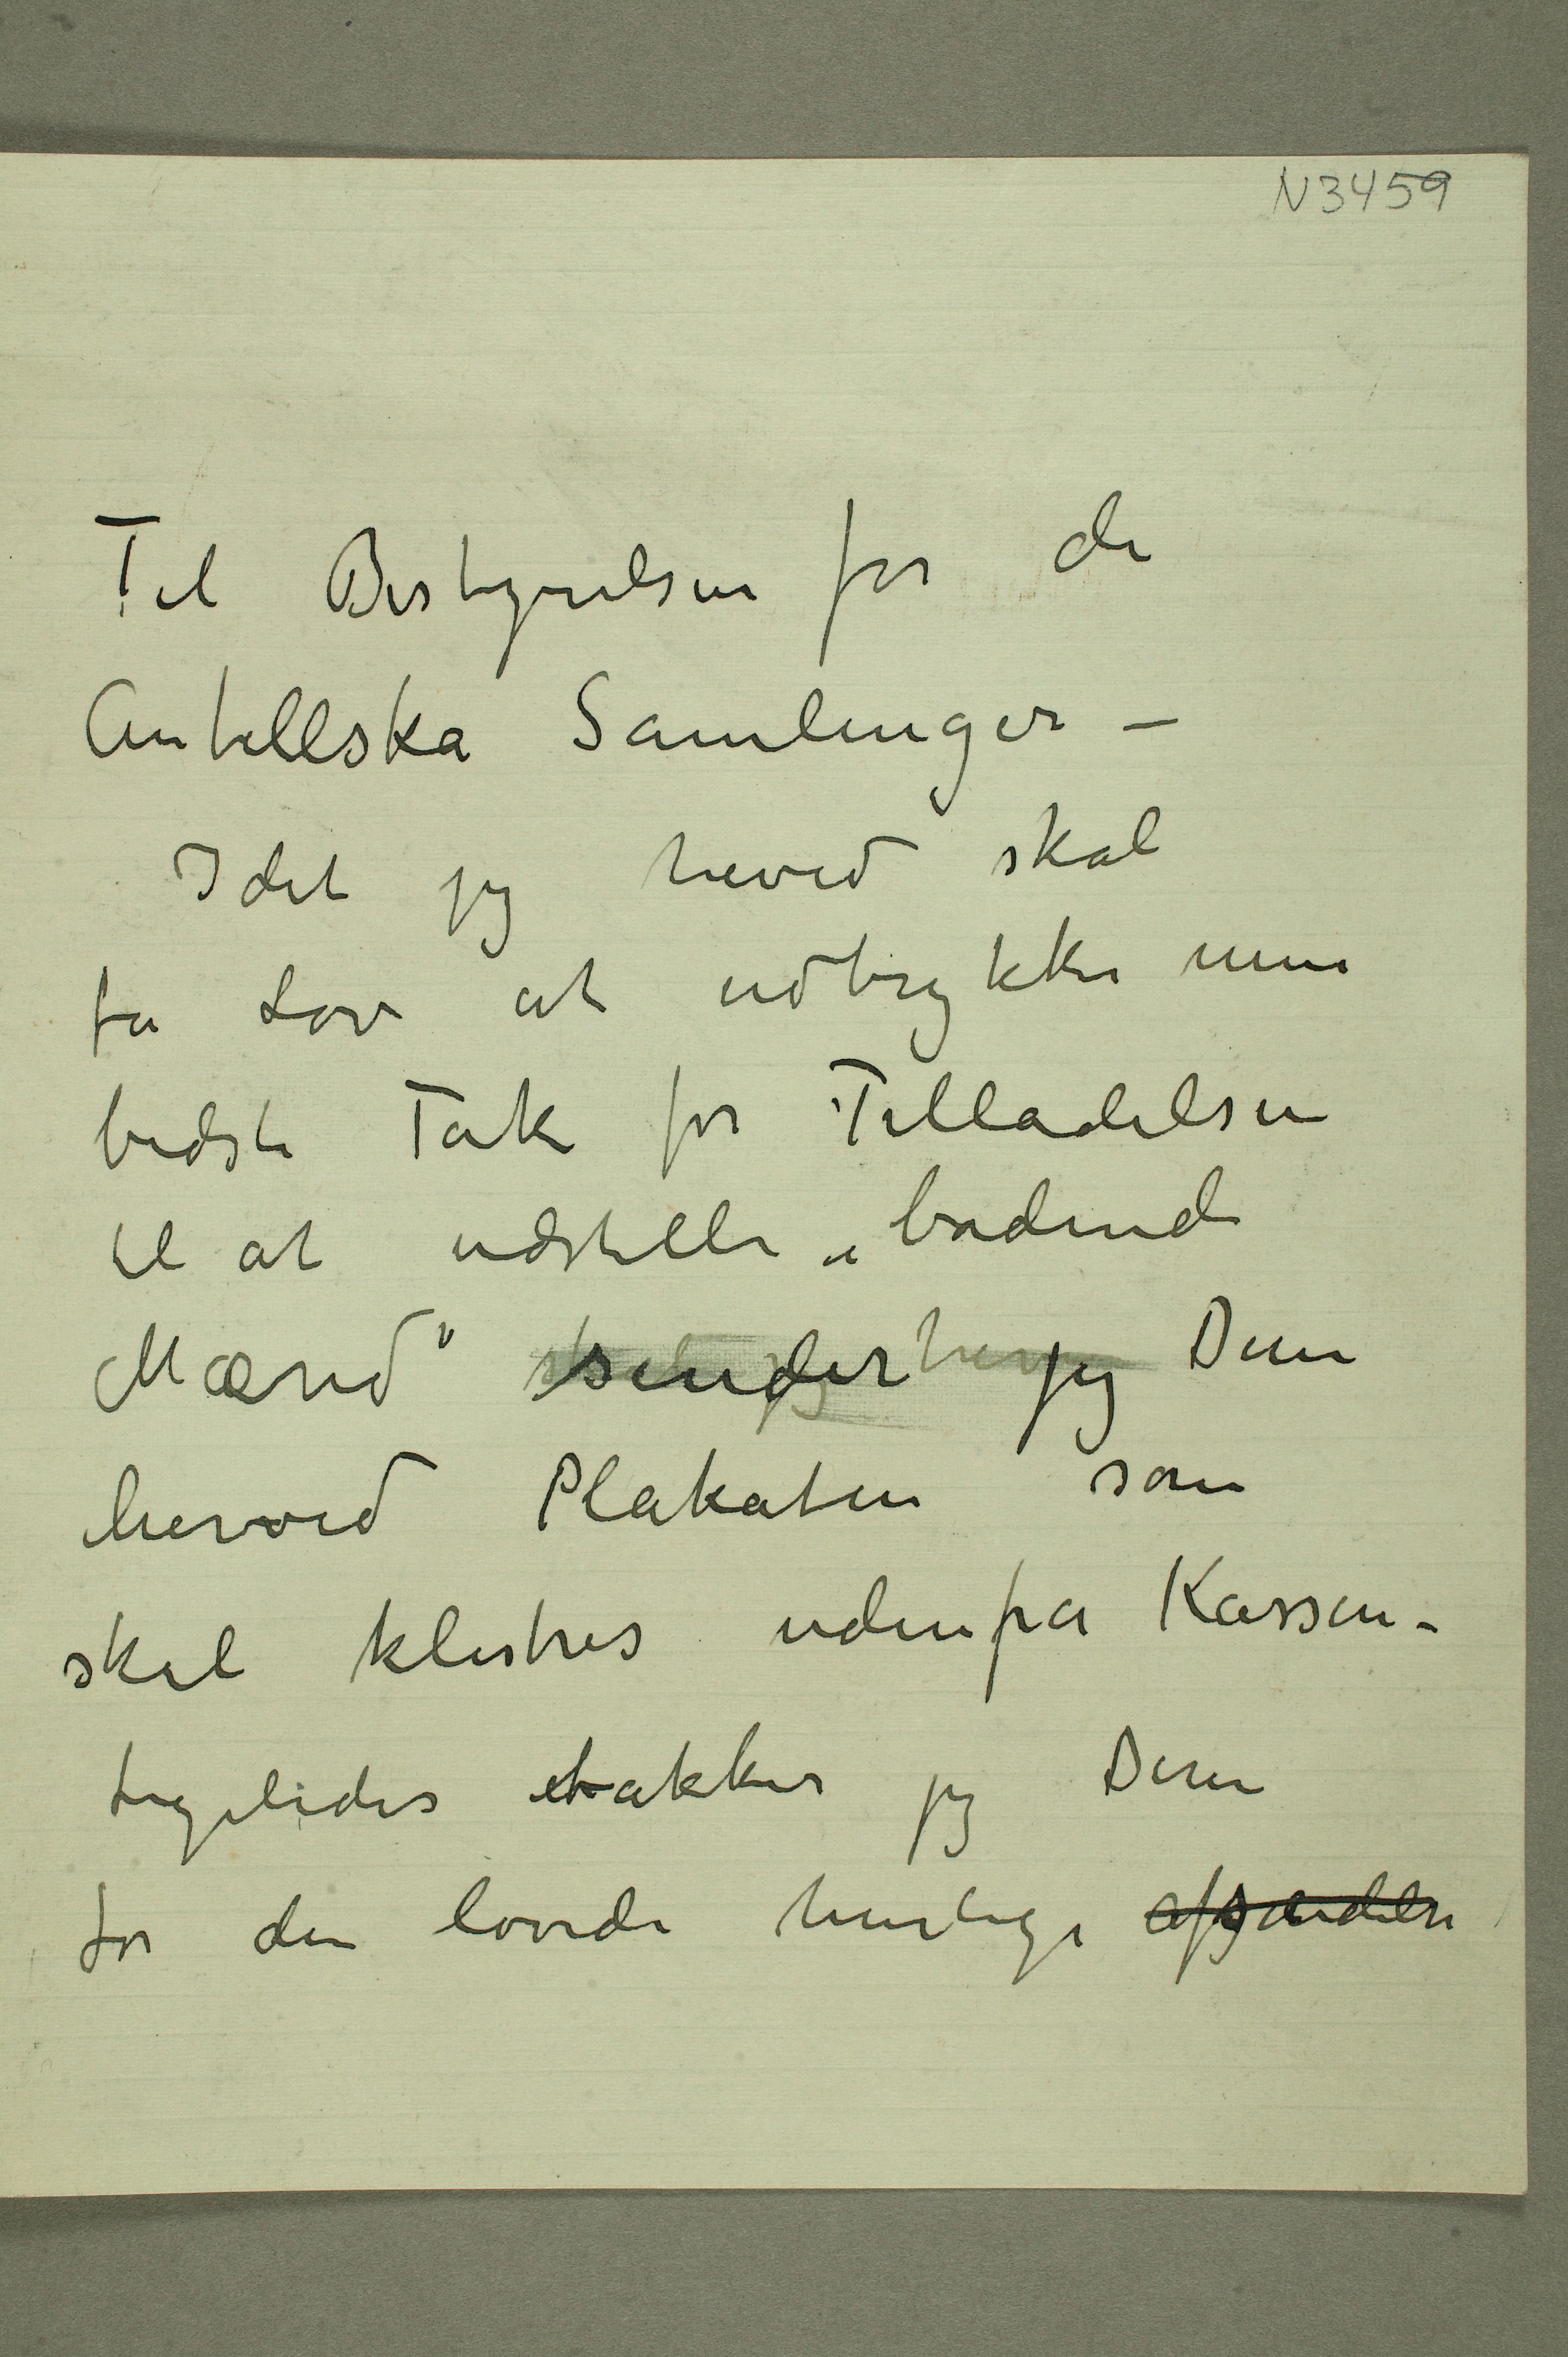 N3459
Til Bestyrelsen for de
Antellska Samlinger –
Idet jeg herved skal
få Lov at udtrykke min
bedste Tak for Tilladelsen
til at udstille „badende
Mænd" sender jeg Dem
herved Plakaten som
skal klistres udenpå Kassen –
Ligeledes takker jeg Dem
for den lovede hurtige afsendelse